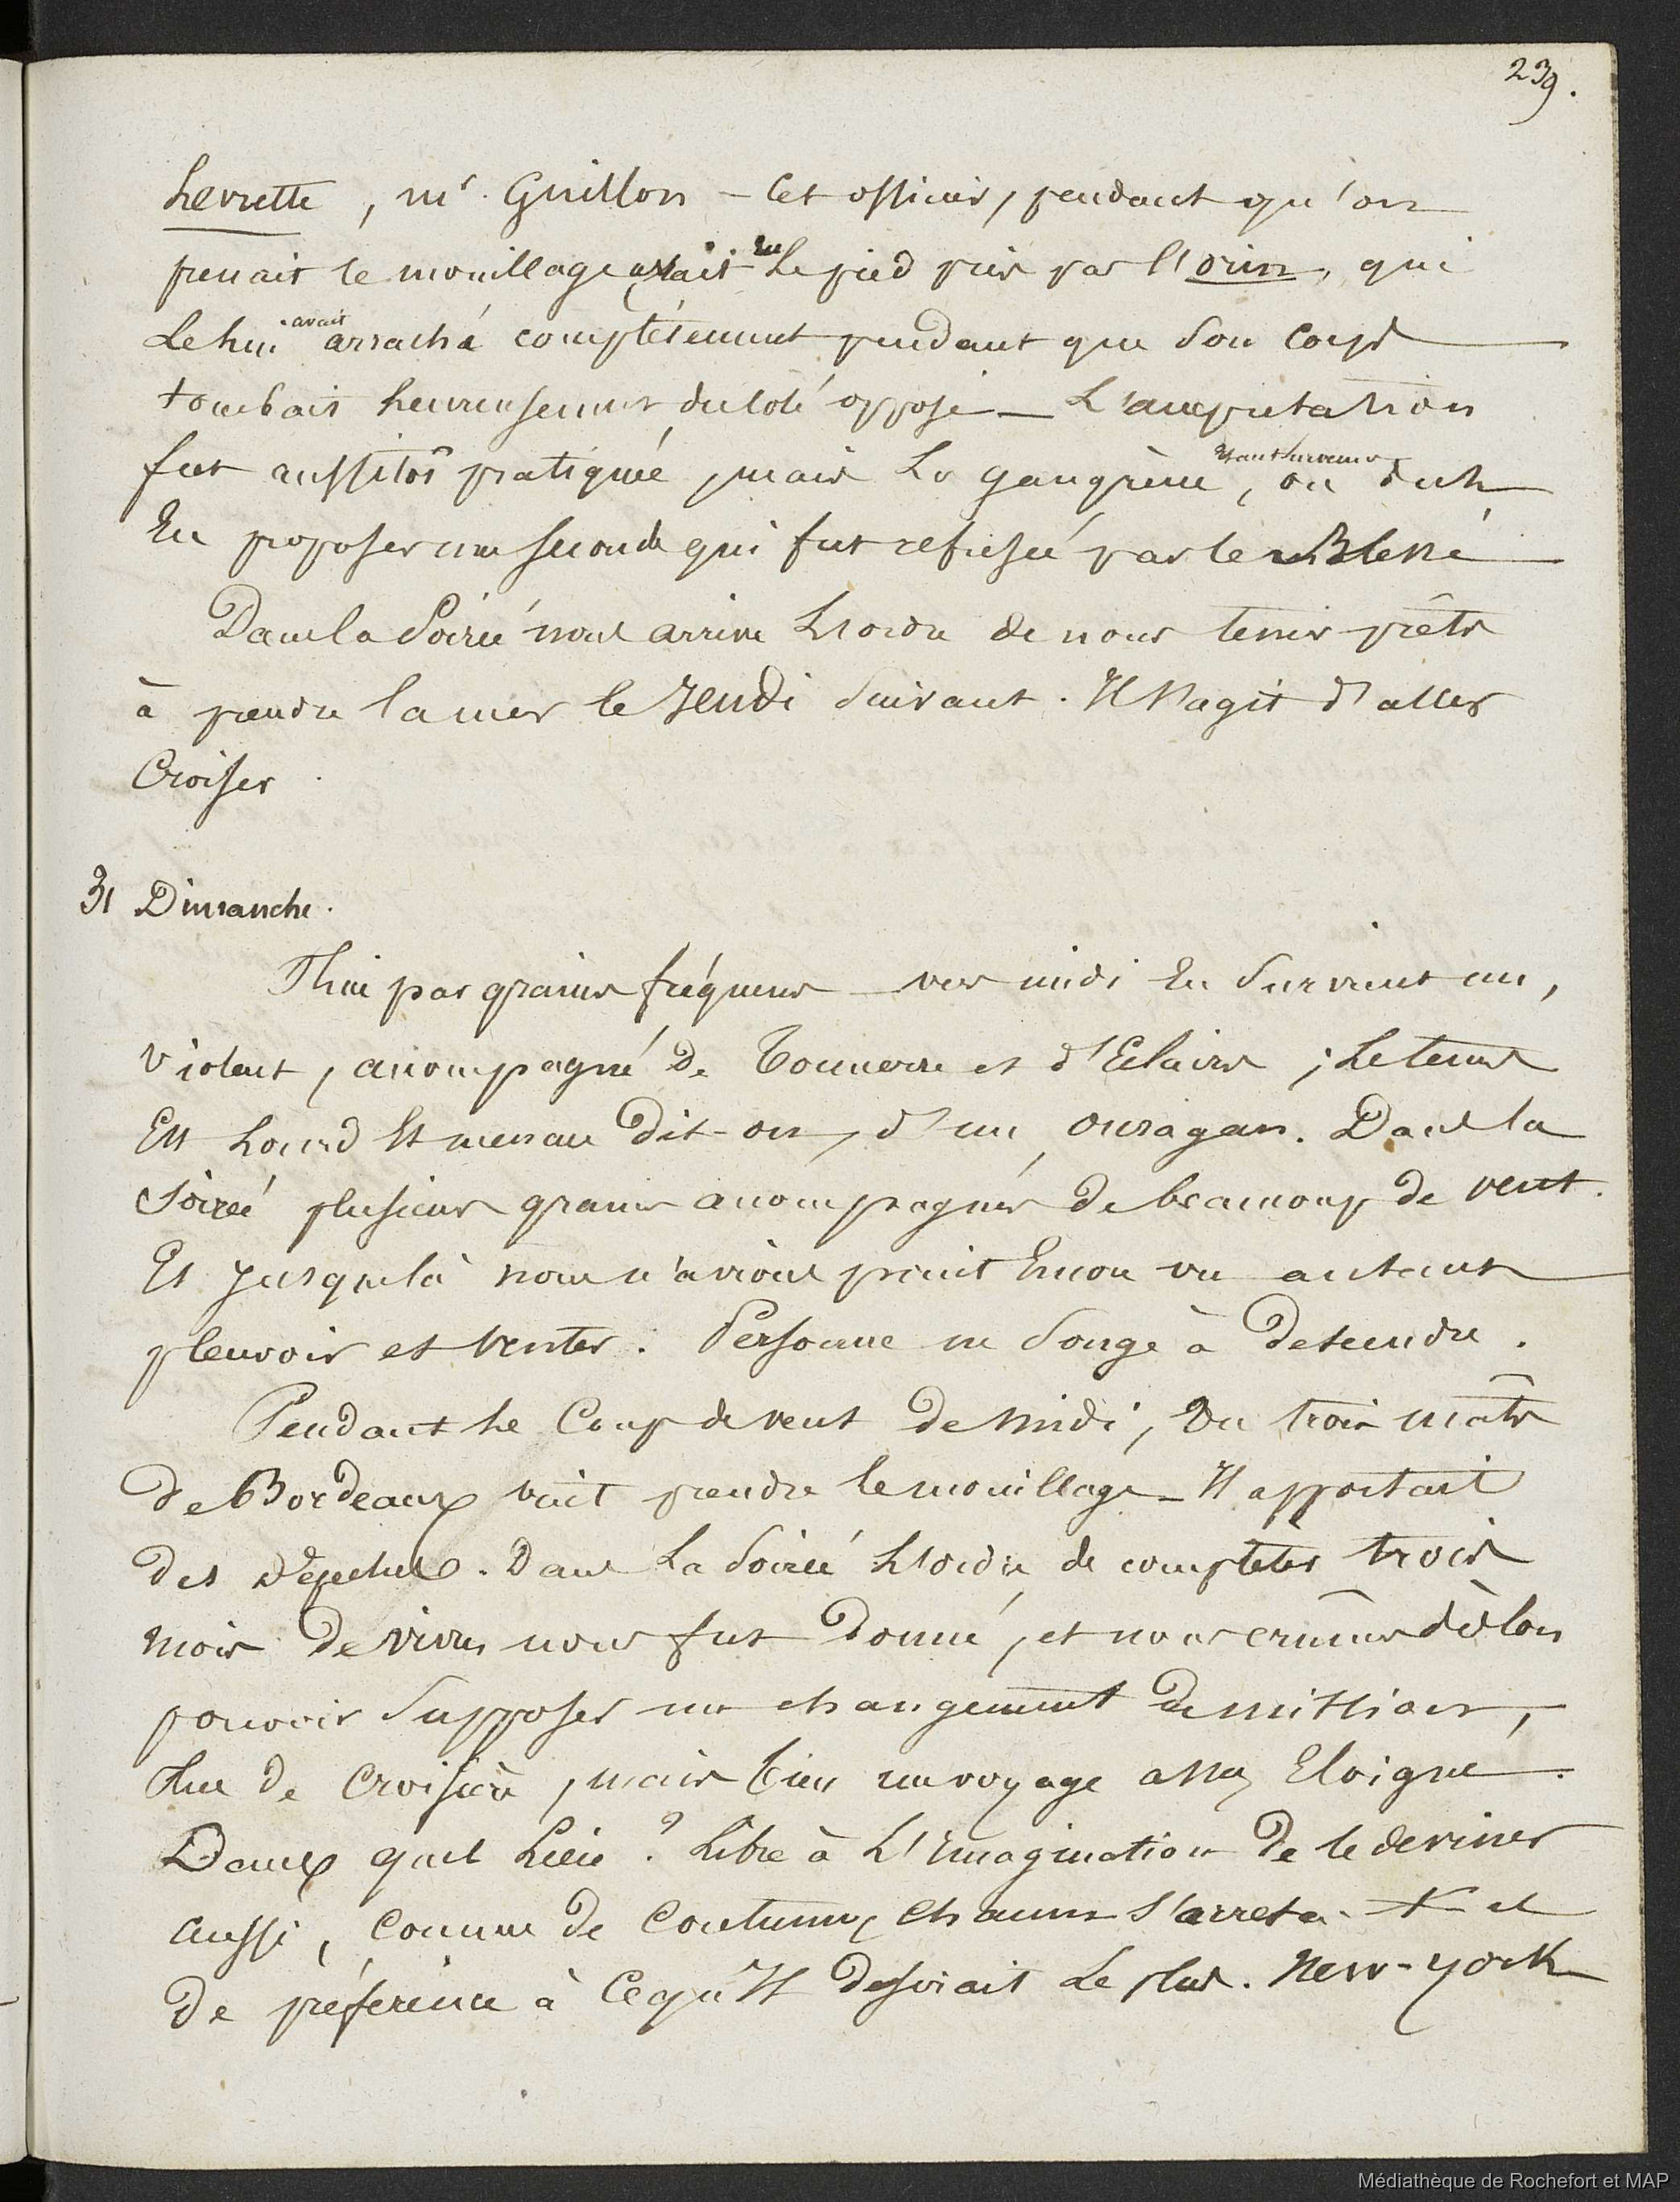 239.
Levrette, mr. Guillon - Cet officier, pendant qu'on
prenait le mouillage avait eu le pied pris par l'orin, qui
le lui avait arraché complétement pendant que son corps
tombait heureusement du côté opposé - L'amputation
fut aussitôt pratiquée, mais la gangrène ayant survenu, on dut
en proposer une seconde qui fut refusée par le Blessé
Dans la Soirée nous arrive l'ordre de nous tenir prêts
à prendre la mer le Jeudi Suivant. Il s'agit d'aller
Croiser.
31 Dimanche.
Pluie par grains fréquens - vers midi en survient un,
violent, accompagné de Tonnerre et d'Eclairs ; le tems
Est Lourd Et menace dit-on, d'un ouragan. Dans la
Soirée plusieurs grains accompagnés de beaucoup de vent.
Et jusque là nous n'avions point Encore vu autant
pleuvoir et venter. Personne ne songe à descendre.
Pendant le Coup de vent de midi, Un trois mâts
de Bordeaux vint prendre le mouillage - Il apportait
des Dépeches. Dans la Soirée l'ordre de completer trois
mois de vivres nous fut Donné, et nous crûmes dès lors
pouvoir Supposer un changement de mission,
Plus de Croisière, mais bien un voyage assez Eloigné.
Dans quel Lieu ? Libre à l'Imagination de le deviner
aussi, Comme de Coutume, chacun s'arreta et
de préférence à Ce qu'Il desirait le plus. New-York
Médiathèque de Rochefort et MAP